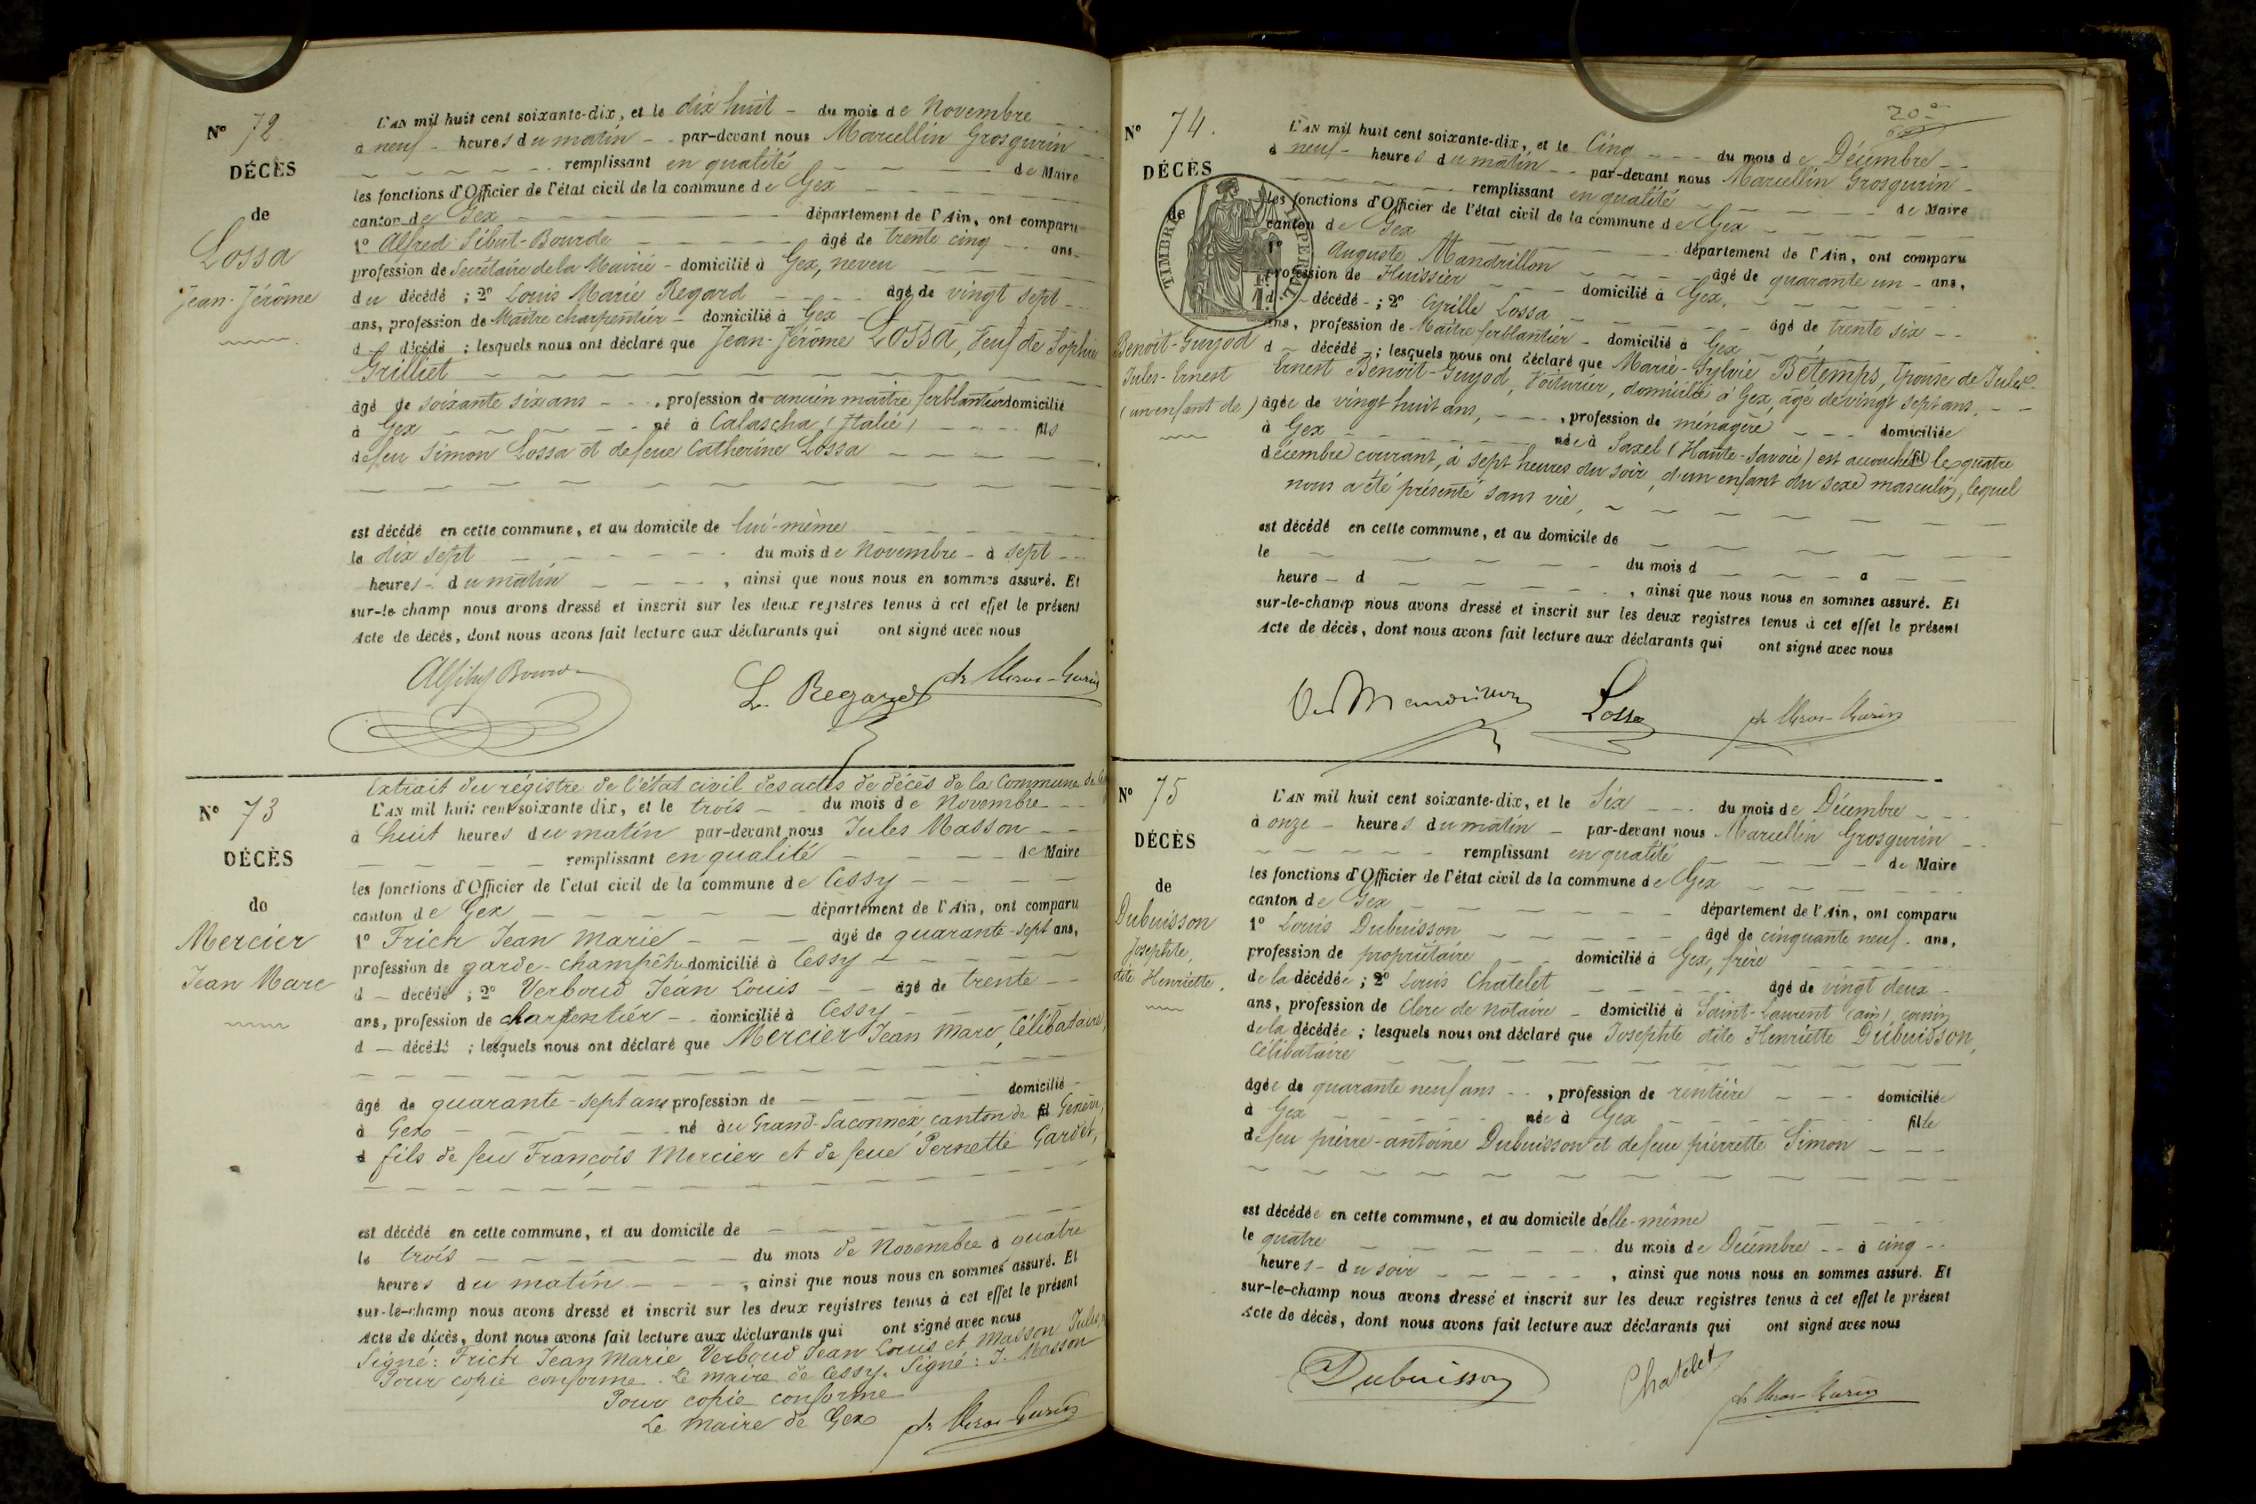 N° 72
DÉCÈS
de
Lossa
Jean-Jérôme
L'AN mil huit cent soixante-dix, et le dix huit - du mois de Novembre
à neuf - heures du matin - par-devant nous Marcellin Grosgurin
remplissant en qualité de Maire
les fonctions d'Officier de l'état civil de la commune de Gex
canton de Gex département de l'Ain, ont comparu
1° Alfred Sibut-Bourde âgé de trente cinq ans
profession de Secrétaire de la Mairie - domicilié à Gex, neveu
du décédé ; 2° Louis Marie Regard âgé de vingt sept
ans, profession de Maître charpentier - domicilié à Gex
d décédé ; lesquels nous ont déclaré que Jean-Jérôme Lossa, veuf de Sophie
Grilliet
âgé de soixante six ans, profession de ancien maître ferblantier domicilié
à Gex né à Calascha (Italie) fils
de feu Simon Lossa et de feue Catherine Lossa
est décédé en cette commune, et au domicile de lui-même
le dix sept du mois de Novembre - à sept
heures - du matin, ainsi que nous nous en sommes assuré. Et
sur-le-champ nous avons dressé et inscrit sur les deux registres tenus à cet effet le présent
Acte de décès, dont nous avons fait lecture aux déclarants qui ont signé avec nous
L. Regard
Extrait du régistre de l'état civil des actes de décès de la Commune de
N° 73
DÉCÈS
de
Mercier
Jean Marc
L'AN mil huit cent soixante-dix, et le trois du mois de Novembre
à huit heures du matin par-devant nous Jules Masson
remplissant en qualité de Maire
les fonctions d'Officier de l'état civil de la commune de Cessy
canton de Gex département de l'Ain, ont comparu
1° Frich Jean Marie âgé de quarante-sept ans,
profession de garde-champêtre domicilié à Cessy
d - décédé ; 2° Verboud Jean Louis âgé de trente
ans, profession de charpentier domicilié à Cessy
d - décédé ; lesquels nous ont déclaré que Mercier Jean Marc, Célibataire,
âgé de quarante-sept ans profession de domicilié
à Gex né au Grand-Saconnex, canton de Genève,
d fils de feu François Mercier et de feue Pernette Gardet,
est décédé en cette commune, et au domicile de
le trois du mois de Novembre à quatre
heures du matin, ainsi que nous nous en sommes assuré. Et
sur-le-champ nous avons dressé et inscrit sur les deux registres tenus à cet effet le présent
Acte de décès, dont nous avons fait lecture aux déclarants qui ont signé avec nous
Signé: Frich Jean Marie Verboud Jean Louis et Masson Jules,
Pour copie conforme. Le maire de Cessy. Signé: J. Masson
Pour copie conforme
Le Maire de Gex
N° 74.
DÉCÈS
de
TIMBRE IMPÉRIAL
Benoit-Guyod
Jules-Ernest
(un enfant de)
L'AN mil huit cent soixante-dix, et le Cinq du mois de Décembre
à neuf - heures du matin par-devant nous Marcellin Grosgurin
remplissant en qualité de Maire
les fonctions d'Officier de l'état civil de la commune de Gex
canton de Gex département de l'Ain, ont comparu
1° Auguste Mandrillon âgé de quarante un - ans,
profession de Huissier domicilié à Gex,
d décédé ; 2° Cyrille Lossa âgé de trente six
ans, profession de Maître ferblantier - domicilié à Gex
d décédé ; lesquels nous ont déclaré que Marie-Sylvie Bétemps, épouse de Jules
Ernest Benoit-Guyod, Voiturier, domicilié à Gex, âgé de vingt sept ans,
âgée de vingt huit ans, profession de ménagère domiciliée
à Gex née à Saxel (Haute-Savoie) est accouchée le quatre
décembre courant, à sept heures du soir, d'un enfant du sexe masculin, lequel
nous a été présenté sans vie,
est décédé en cette commune, et au domicile de
le du mois d à
heure d, ainsi que nous nous en sommes assuré. Et
sur-le-champ nous avons dressé et inscrit sur les deux registres tenus à cet effet le présent
Acte de décès, dont nous avons fait lecture aux déclarants qui ont signé avec nous
Mandrillon Lossa
N° 75
DÉCÈS
de
Dubuisson
Josephte,
dite Henriette.
L'AN mil huit cent soixante-dix, et le Six du mois de Décembre
à onze - heures du matin - par-devant nous Marcellin Grosgurin
remplissant en qualité de Maire
les fonctions d'Officier de l'état civil de la commune de Gex
canton de Gex département de l'Ain, ont comparu
1° Louis Dubuisson âgé de cinquante neuf - ans,
profession de propriétaire domicilié à Gex, frère
de la décédée ; 2° Louis Chatelet âgé de vingt deux
ans, profession de Clerc de Notaire - domicilié à Saint-Laurent (ain), cousin
de la décédée ; lesquels nous ont déclaré que Josephte dite Henriette Dubuisson,
Célibataire
âgée de quarante neuf ans, profession de rentière domiciliée
à Gex née à Gex fille
de feu pierre-antoine Dubuisson et de feue pierrette Simon
est décédée en cette commune, et au domicile d'elle-même
le quatre du mois de Décembre à cinq
heures - du soir, ainsi que nous nous en sommes assuré. Et
sur-le-champ nous avons dressé et inscrit sur les deux registres tenus à cet effet le présent
Acte de décès, dont nous avons fait lecture aux déclarants qui ont signé avec nous
Dubuisson Chatelet